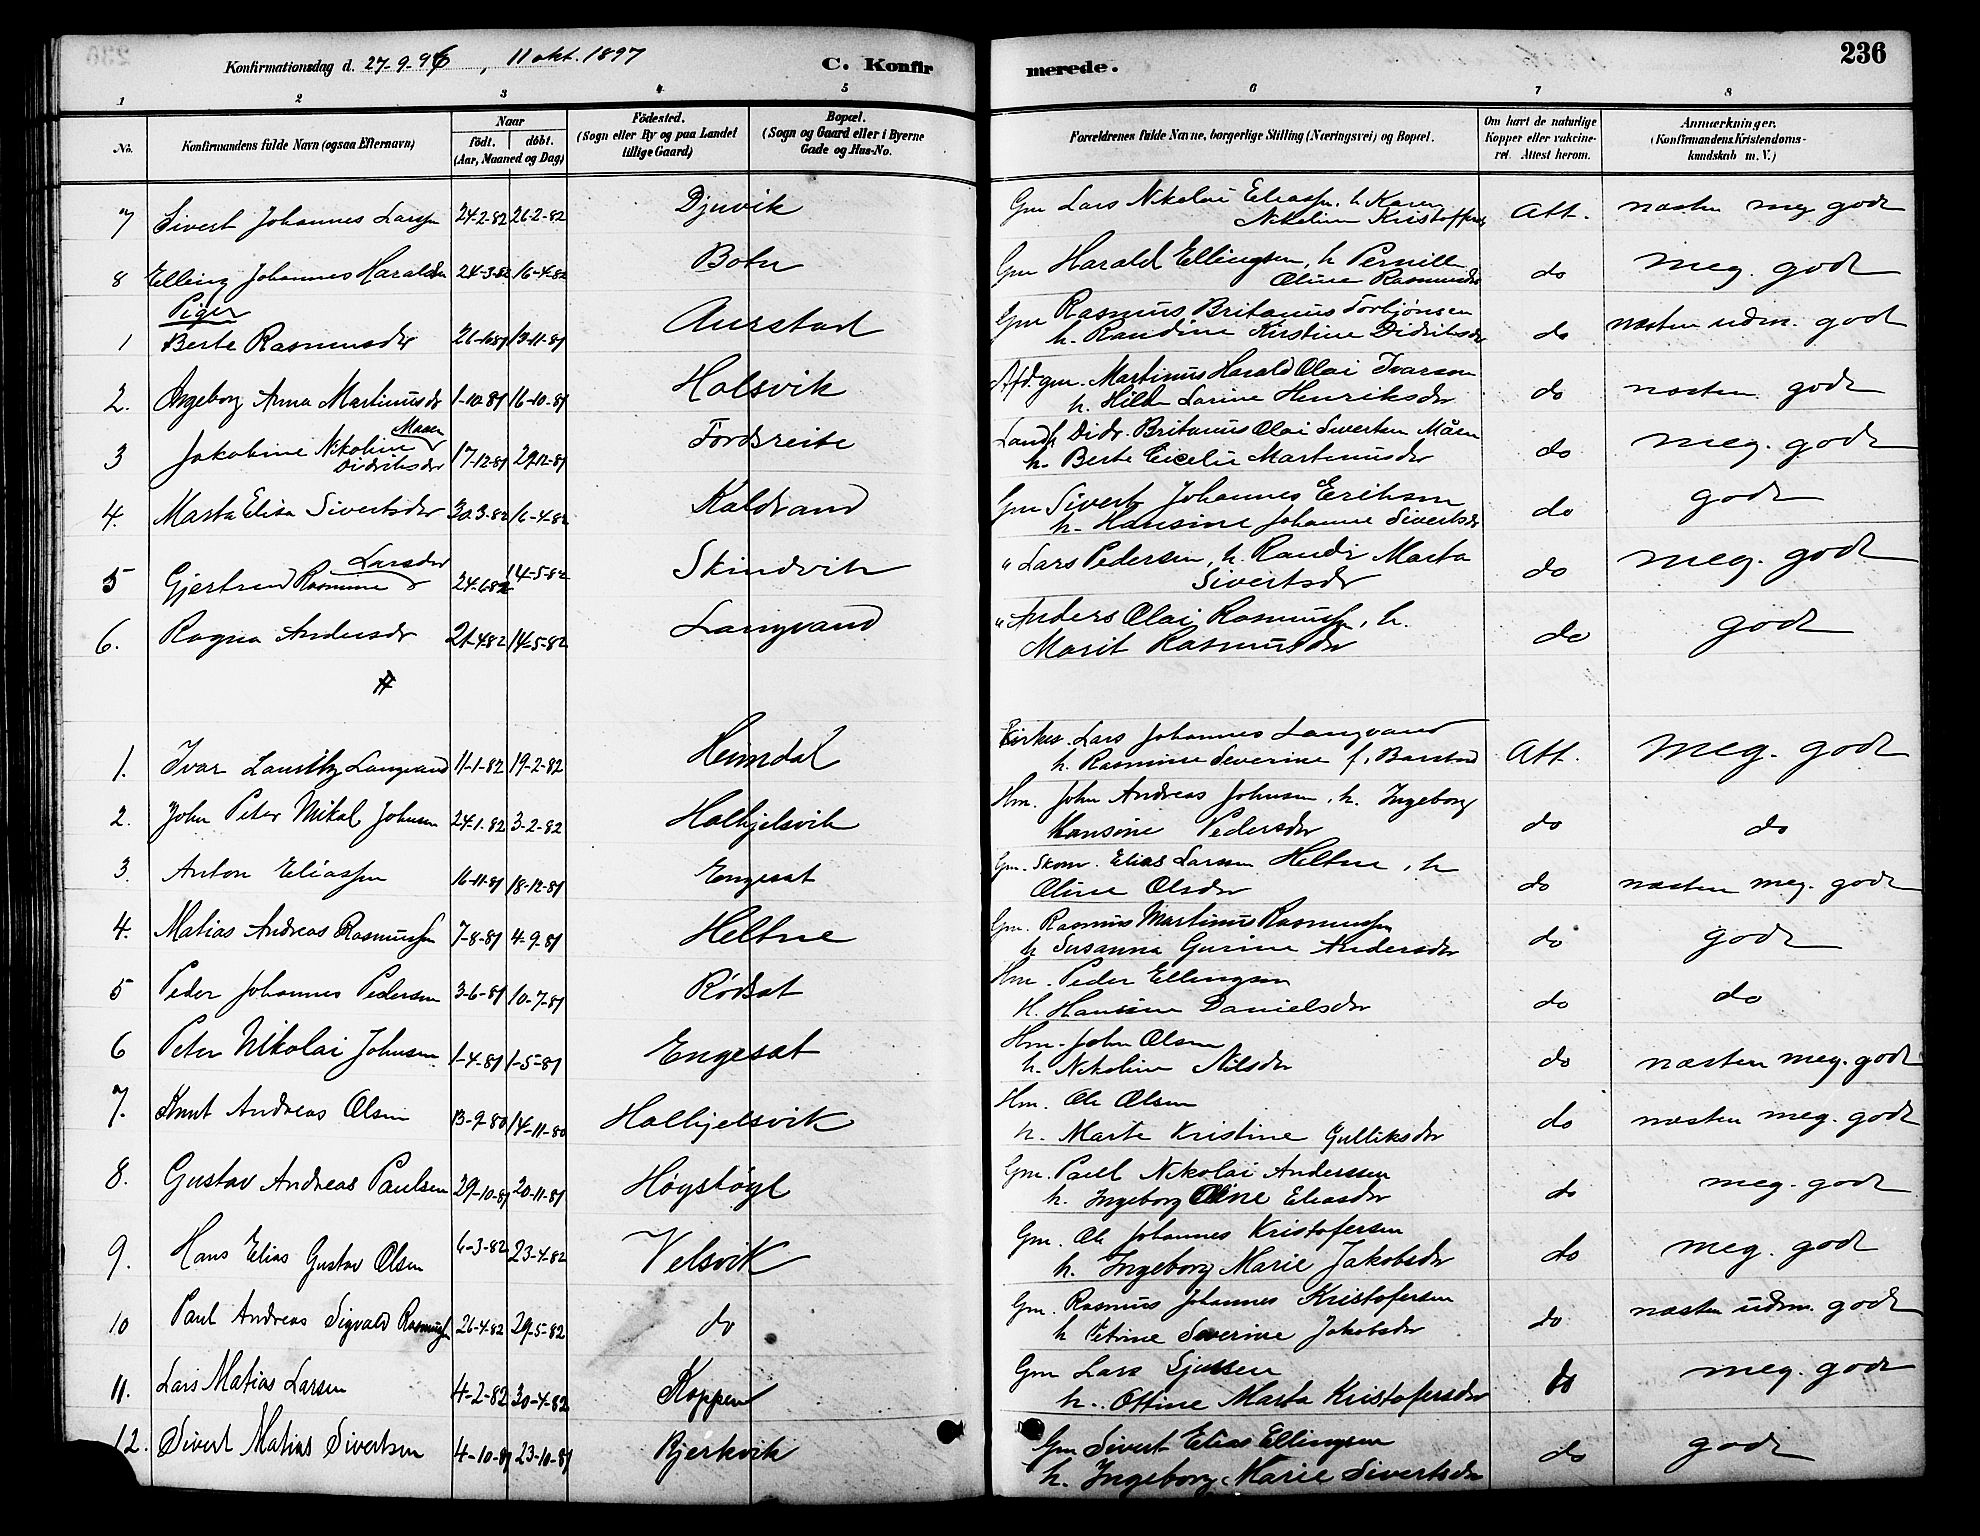 Konfirmationsdag d. 27-9-96, 11 okt. 1897 C. Konfirmerede. 236
1 2 3 4 5 6 7 8
No. Konfirmandens fulde Navn (ogsaa Efternavn) Naar født. døbt. (Aar, Maaned og Dag) Fødested. (Sogn eller By og paa Landet tillige Gaard) Bopæl. (Sogn og Gaard eller i Byerne Gade og Hus-No. Forældrenes fulde Navne, borgerlige Stilling (Næringsvei) og Bopæl. Om havt de naturlige Kopper eller vaccineret. Attest herom. Anmærkninger. (Konfirmandens Kristendomskundskab m. V.)
7 Sivert Johannes Larssen 24-2-82 26-2-82 Djuvik Gm Lars Nikolai Eliassen, h. Karen Nikoline Kristoffers Att. næsten meg godt
8 Elling Johannes Haraldsen 24-3-82 16-4-82 Botn Gm Harald Ellingsen, h. Pernill Oline Rasmusdr do meg. godt
Piger
1 Berte Rasmusdr 26-10-81 13-11-81 Aurstad Gm Rasmus Britanus Torbjönsen h. Randine Kirstine Didriksdr do næsten udm. godt
2. Ingeborg Anna Martinusdr 1-10-81 16-10-81 Holsvik Afd. gm. Martinus Harald Olai Ivarson h. Hilda Larine Henriksdr do næsten godt
3 Jakobine Nikoline Maaen Didriksdr 17-12-81 29-12-81 Fordsreite Landh Didr. Britanus Olai Sivertsen Måen h. Berte Cicelie Martinusdr do meg. godt
4. Marta Elisa Sivertsdr 30-3-82 16-4-82 Kaldvand Gm Sivert Johannes Eriksen h. Hansine Johanne Sivertsdr do godt
5 Gjertrud Rasmine Larsdr 14-5-82 Skindvik " Lars Pedersen, h. Randi Marta Sivertsdr do meg. godt
6. Ragna Andersdr 21-4-82 14-5-82 Langvand " Anders Olai Rasmussen, h. Marit Rasmusdr do godt
1. Ivar Lauritz Langvand 11-1-82 19-2-82 Heimdal Kirkes. Lars Johannes Langvand h. Rasmine Severine f. Barstad Att. meg. godt
2. John Peter Mikal Johnsen 24-1-82 3-2-82 Halkjelsvik Hm. John Andreas Johnsen, h. Ingeborg Hansine Pedersdr do do
3. Anton Eliassen 16-11-81 18-12-81 Engeset Gm. Skom. Elias Larsen Heltne, h Oline Olsdr do næsten meg. godt
4. Matias Andreas Rasmussen 7-8-81 4-9-81 Heltne Gm. Rasmus Martinus Rasmussen h Susanna Gurine Andersdr do godt
5 Peder Johannes Pedersen 3-6-81 10-7-81 Rødsæt Hm. Peder Ellingsen H. Hansine Danielsdr do do
6 Peter Nikolai Johnsen 1-4-81 1-5-81 Engesæt Hm. John Olsen h. Nikoline Nilsdr do næsten meg. godt
7. Knut Andreas Olsen 13-9-80 14-11-80 Halkjelsvik Hm. Ole Olsen h. Marte Kristine Gulliksdr do næsten meg. godt
8. Gustav Andreas Paulsen 29-10-81 20-11-81 Høgstøyl Gm. Paul Nikolai Anderssen h. Ingeborg Oline Eliasdr do meg. godt
9. Hans Elias Gustav Olsen 6-3-82 23-4-82 Velsvik Gm. Ole Johannes Kristofersen h. Ingeborg Marie Jakobsdr do meg. godt
10 Paul Andreas Sigvald Rasmussen 26-4-82 29-5-82 do Gm. Rasmus Johannes Kristofersen h Petrine Severine Jakobsdr do næsten udm. godt
11. Lars Matias Larsen 4-2-82 30-4-82 Koppen Gm Lars Sjursen h. Ottine Marta Kristofersdr do meg. godt
12. Sivert Matias Sivertsen 4-10-81 23-10-81 Bjerkvik Gm Sivert Elias Ellingsen h. Ingeborg Marie Sivertsdr do godt